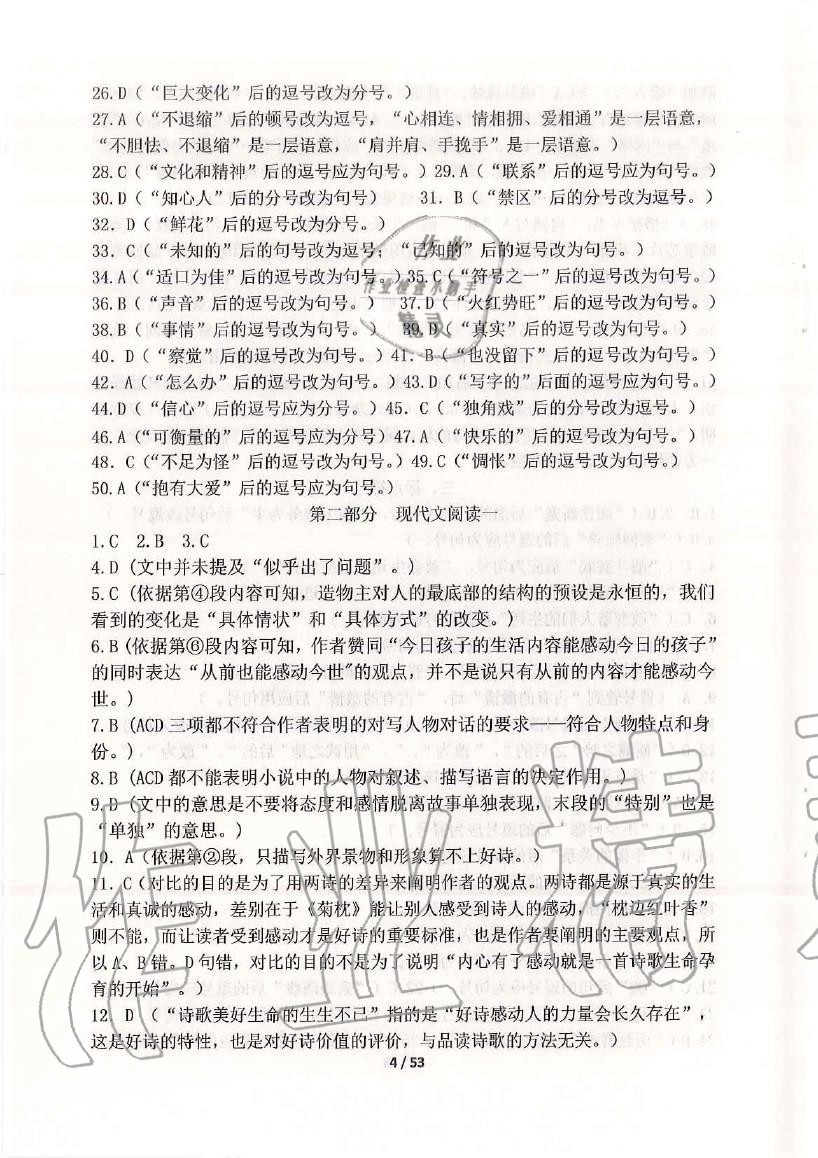 26.D（“巨大变化”后的逗号改为分号。）
27.A（“不退缩”后的顿号改为逗号，“心相连、情相拥、爱相通”是一层语意，
“不胆怯、不退缩”是一层语意，“肩并肩、手挽手”是一层语意。）
28.C（“文化和精神”后的逗号应为句号。）29.A（“联系”后的逗号改为句号。）
30.D（“知心人”后的分号改为句号）  31．B（“禁区”后的分号改为逗号。）
32．D（“鲜花”后的逗号改为分号。）
33．C（“未知的”后的句号改为逗号；“已知的”后的逗号改为句号。）
34.A（“适口为佳”后的逗号改为句号）35.C（“符号之一”后的逗号改为句号。）
36．B（“声音”后的逗号改为句号。）37.D（“火红势旺”后的逗号改为句号。）
38.B（“事情”后的逗号改为句号。）39．D（“真实”后的逗号改为句号。）
40．D（“察觉”后的逗号改为句号。）41．B（“也没留下”后的逗号改为句号。）
42．A（“怎么办”后的逗号改为句号。）43.D（“写字的”后面的逗号改为句号。）
44.D（“信心”后的逗号应为分号。）45．C（“独角戏”后的分号改为逗号。）
46.A（“可衡量的”后的逗号应为分号）47.A（“快乐的”后的逗号改为句号。）
48．C（“不足为怪”后的逗号改为句号。）49.C（“惆怅”后的逗号改为句号。）
50.A（“抱有大爱”后的逗号应为句号。）
第二部分 现代文阅读一
1.C  2.B  3.C
4.D (文中并未提及“似乎出了问题”。）
5.C（依据第④段内容可知，造物主对人的最底部的结构的预设是永恒的，我们
看到的变化是“具体情状”和“具体方式”的改变。）
6.B (依据第⑥段内容可知，作者赞同“今日孩子的生活内容能感动今日的孩子”
的同时表达“从前也能感动今世”的观点，并不是说只有从前的内容才能感动今
世。）
7.B (ACD 三项都不符合作者表明的对写人物对话的要求——符合人物特点和身
份。）
8.B (ACD 都不能表明小说中的人物对叙述、描写语言的决定作用。）
9.B (文中的意思是不要将态度和感情脱离故事单独表现，末段的“特别”也是
“单独”的意思。）
10．A（依据第②段，只描写外界景物和形象算不上好诗。）
11．C（对比的目的是为了用两诗的差异来阐明作者的观点。两诗都是源于真实的生
活和真诚的感动，差别在于《菊枕》能让别人感受到诗人的感动，“枕边红叶香”
则不能，而让读者受到感动才是好诗的重要标准，也是作者要阐明的主要观点，所
以 A、B 错。D 句错，对比的目的不是为了说明“内心有了感动就是一首诗歌生命孕
育的开始”。）
12．D （“诗歌美好生命的生生不已”指的是“好诗感动人的力量会长久存在”，
这是好诗的特性，也是对好诗价值的评价，与品读诗歌的方法无关。）
4 / 53